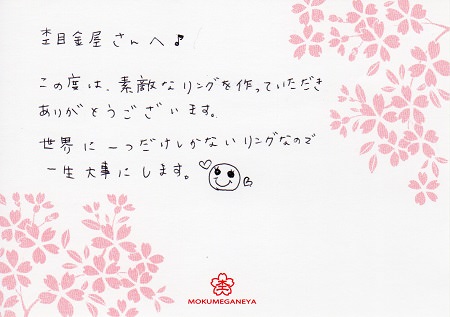 杢目金屋さんへ♪
この度は、素敵なリングを作っていただき
ありがとうございます。
世界に一つだけしかないリングなので
一生大事にします。
MOKUMEGANEYA